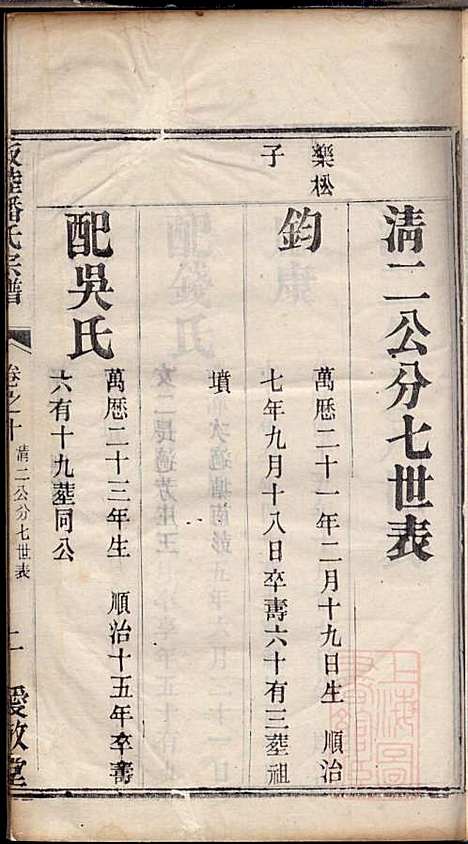 清二公分七世表
樂松
子
鈞
萬曆二十一年二月十九日生 順治
七年九月十八日卒壽六十有三塟祖
墳
配吳氏
萬曆二十三年生 順治十五年卒壽
六有十九塟同公
潘氏宗譜
卷之十
清二公分七世表
二
愛敬堂
上海